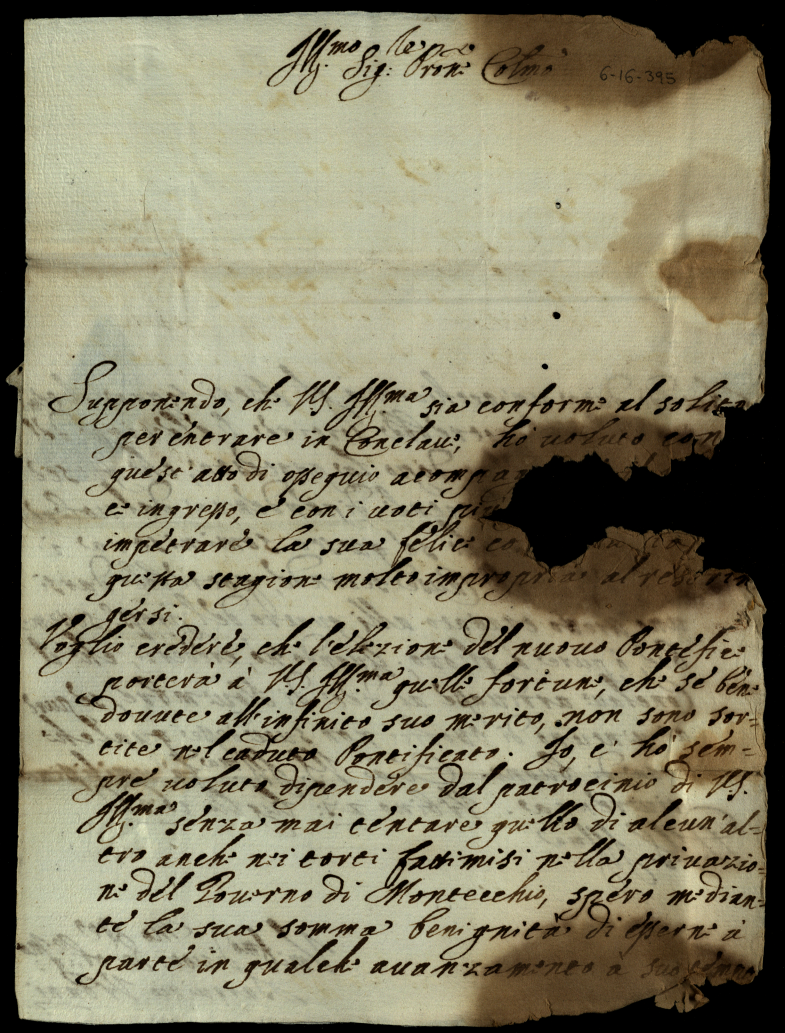 Ill.mo
Sig.re Pron.e Colmo
6-16-395
Supponendo, che V.S. Ill.ma sia conforme al solito
per entrare in Conclave, hò uoluto con
quest' atto di ossequio acompa
e ingresso, e con i uoti più
impetrare la sua felice
questa stagione molto impropria al restrin
gersi.
Voglio credere, che l'elezione del nuouo Pontefice
porterà à V.S. Ill.ma quelle fortune, che se bene
douute all'infinito suo merito, non sono sor-
tite nel caduto Pontificato. Io, c' hò sem-
pre uoluto dipendere dal patrocinio di V.S.
Ill.ma senza mai tentare quello di alcun' al-
tro anche nei torti fattimisi nella priuazio-
ne del Gouerno di Montecchio, spero median-
te la sua somma benignità di esserne à
parte in qualche auanzamento à suo tempo